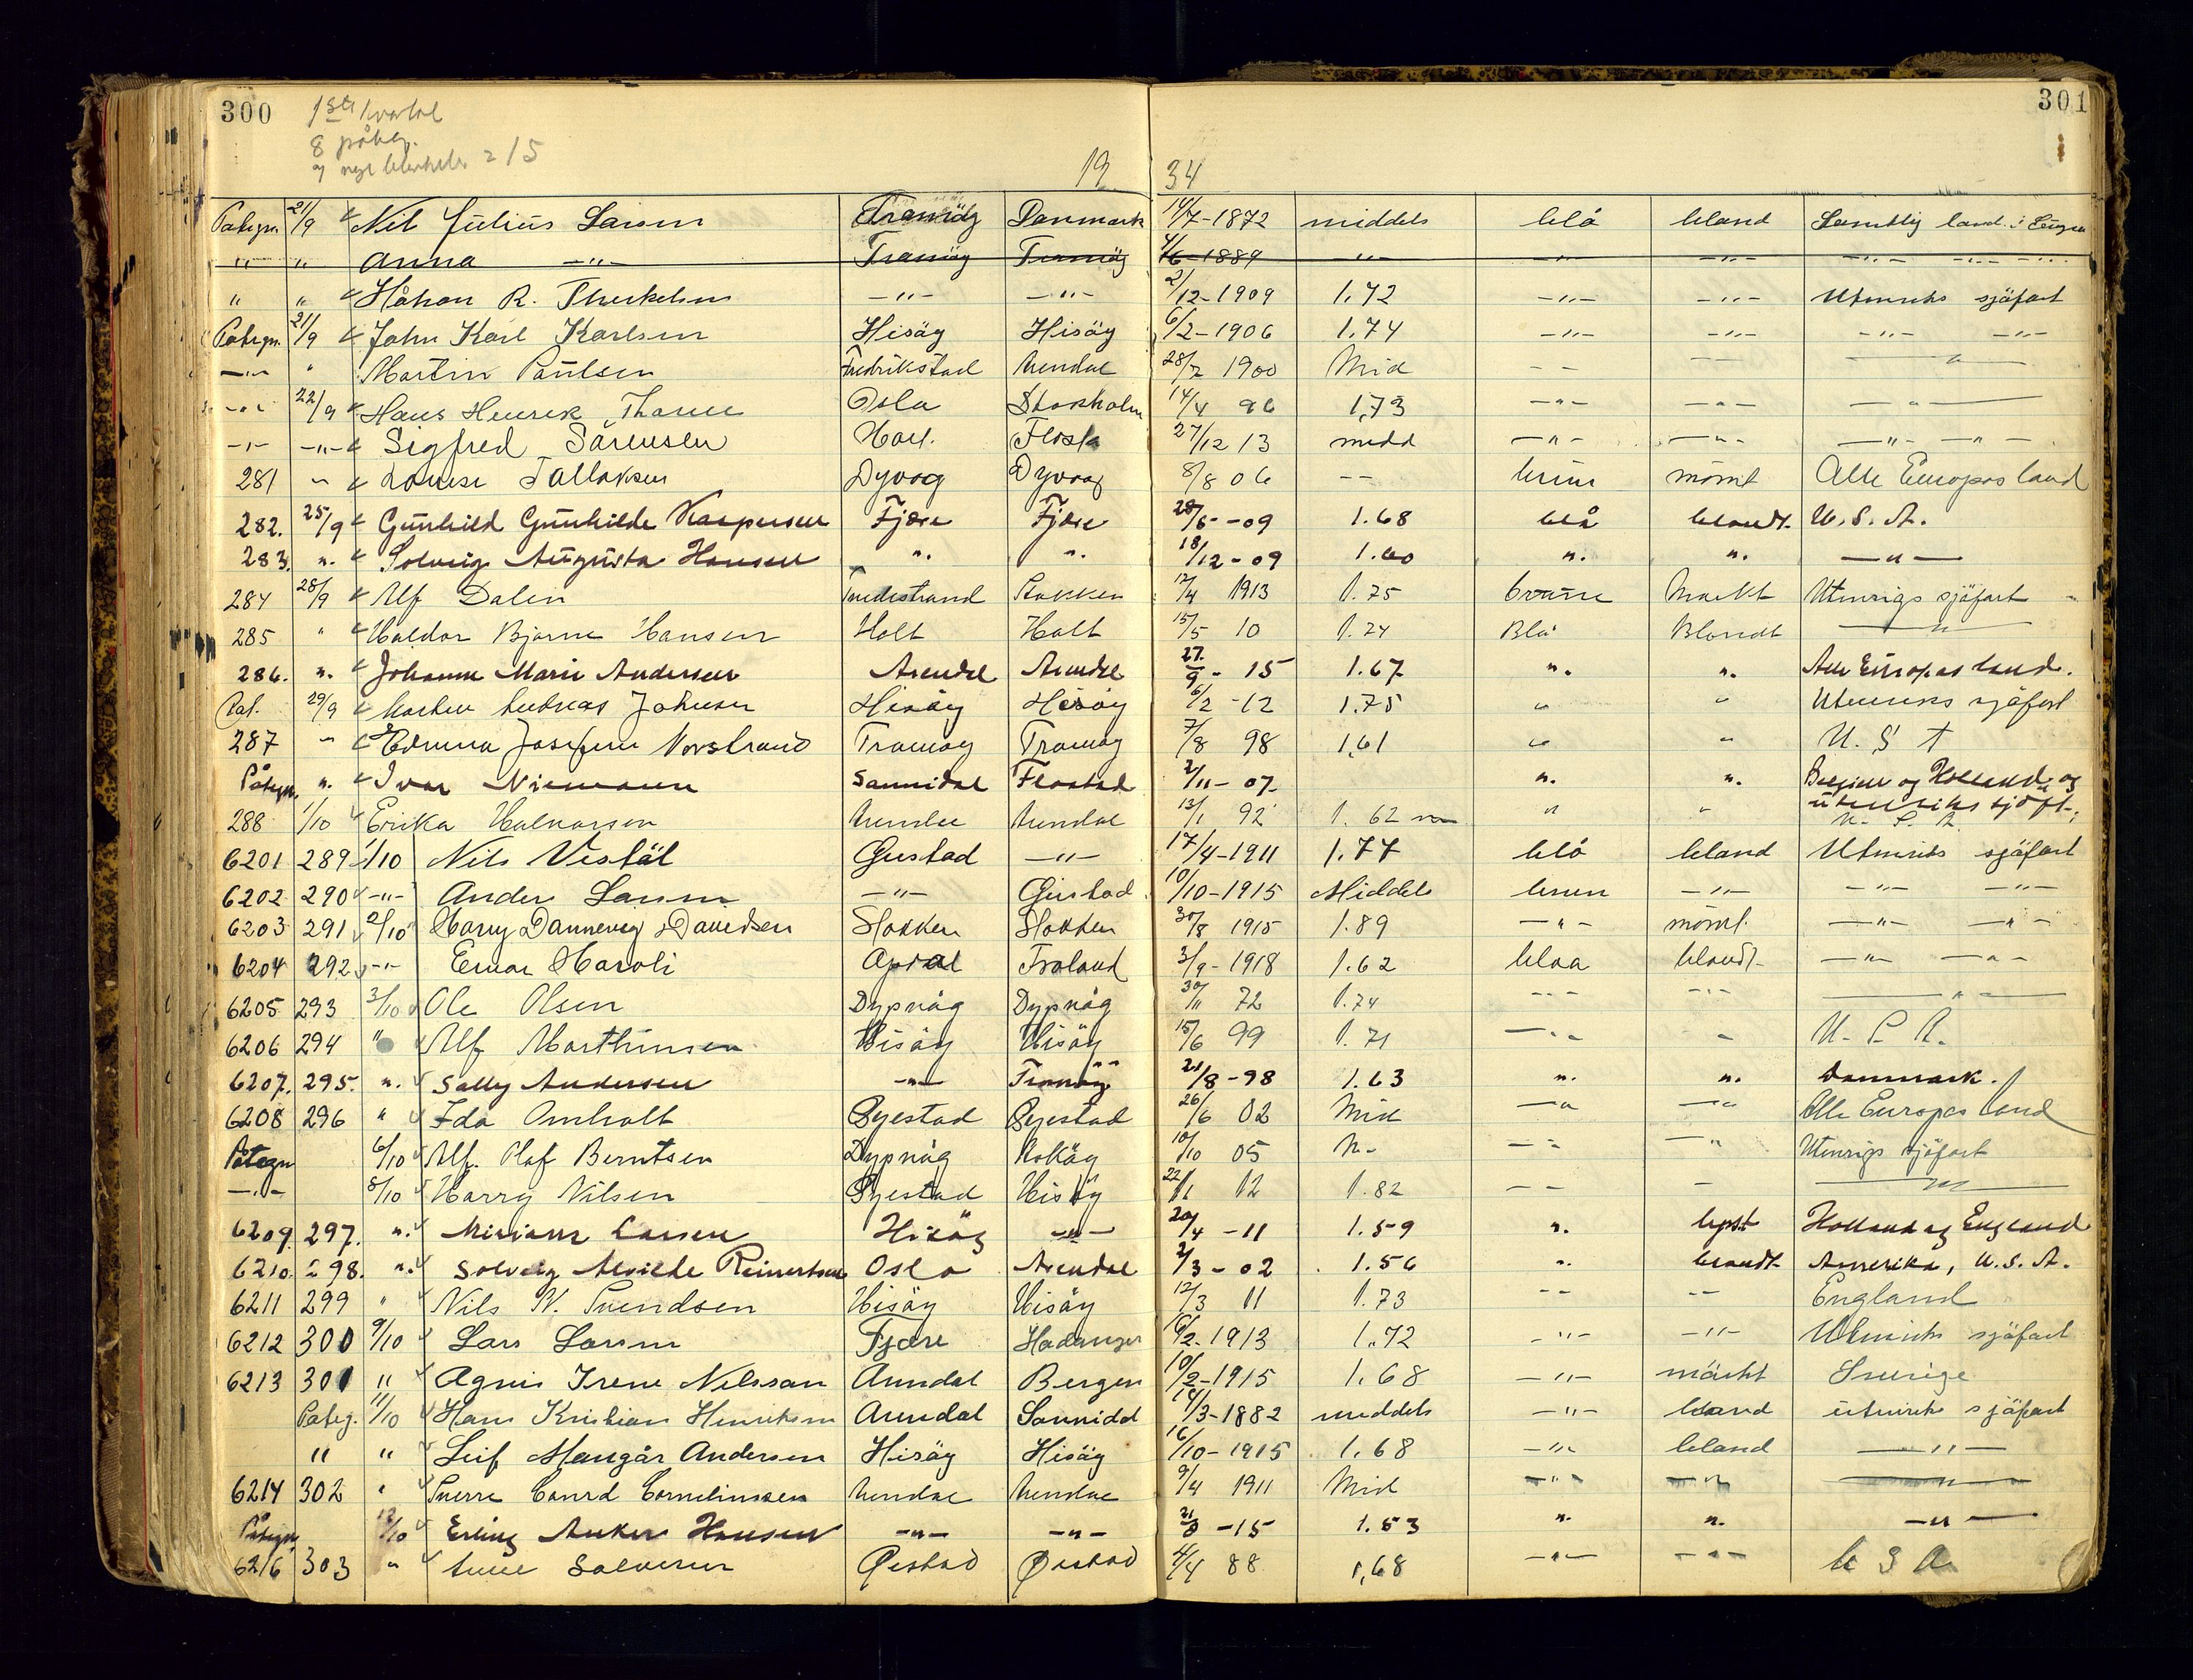 300
301
1ste kvartal
8 påteg.
7 nye = 15
19 34
Pategn. 21/9 Nil Julius Larsen Tromöy Danmark 14/7-1872 middels blå bland Samtlig land. i Europa
" " Anna -"- Tromöy Tromöy 4/6-1889 -"- -"- -"- -"- -"-
" " Håkon R. Therkelsen -"- -"- 2/12-1909 1,72 -"- -"- Utenriks sjöfart
Pategn. 21/9 John Karl Karlsen Hisöy Hisöy 6/2-1906 1.74 -"- -"- -"- -"-
-"- " Martin Paulsen Fredrikstad Arendal 28/2 1900 Mid - - - - "
-"- 22/9 Hans Henrik Oslo Stokholm 14/4 96 1,73 -"- -"- -"-
-"- -"- Sigfred Sörensen Flosta 27/12 13 midd -"- -"- -"- -"-
281 " Louise Tallaksen Dyvog Dyvog 8/8 06 - - brun mörnt Alle Europas land
282. 25/9 Gunhild Gunhilde Kaspersen Fjære Fjære 28/5-09 1.68 blå blondt. U.S.A.
283. ". Solveig Augusta Hansen ". ". 18/12-09 1.60 ". ". -"-
284 28/9 Alf Dalen Tvedestrand Stokken 12/4 1913 1.75 brune Mørkt Utenrigs sjöfart
285 " Haldor Bjarne Hansen Holt Holt 15/5 10 1.74 Blå Blondt "
286. ". Johanne Marie Andersen Arendal Arendal 27/9-15 1.67 ". ". Alle Europas lande.
Pat. 29/9 Andreas Johnsen Hisöy Hisöy 6/2-12 1.75 " " Utenriks sjöfart
287 " Edvina Josefine Vorstrand Tromoy Tromoy 7/8 98 1,61 " " U. S A
Påtegn. ". Ivar Niemann Sannidal Flostad 2/11-07. ". ". Belgien og Holland og utenriks sjöf.
288 1/10 Erika Halvorsen Arendal Arendal 13/1 92 1.62 " " U. S. A.
6201 289 1/10 Nils Vestöl Gjestad -"- 17/4-1911 1.77 blå bland Utenriks sjöfart
6202 290 -"- Anders Larsen -"- Gjestad 10/10-1915 Middels brun -"- -"- -"-
6203 291 2/10 Harry Dannevig Davidsen Stokken Stokken 30/8 1915 1.89 -"- mörnt. -"- -"-
6204 292 -"- Einar Haroli Froland 3/9-1918 1.62 blaa blondt -"- -"-
6205 293 3/10 Ole Olsen Dypvåg Dypvåg 30/11 72 1.74 -"- -"- "
6206 294 " Alf Marthinsen Hisöy Hisöy 15/6 99 1.71 -"- " U. S. A.
6207. 295. ". Sally Andersen -"- Tromöy 21/8-98 1.63 ". ". Danmark.
6208 296 " Ida Omholt Gjestad Gjestad 26/6 02 Mid -"- -"- Alle Europas land
Påtegn 6/10 Alf. Olaf Berntsen Dypvåg 10/10 05 -"- -"- Utenrigs sjöfart
-"- 8/10 Harry Nilsen Gjestad Hisöy 22/1 12 1.82 - - - "
6209. 297. ". Miriam Larsen Hisöy -"- 20/4-11 1.59 ". lyst Holland og England
6210. 298. ". Solveig Alvilde Reinertsen Oslo Arendal 2/3-02 1.56 ". blondt Amerika, U.S.A.
6211 299 " Nils N. Svendsen Hisöy Hisöy 12/3 11 1.73 - - - - England
6212 300 9/10 Lars Larsen Fjære Hadanger 6/2-1913 1.72 -"- -"- Utenriks sjöfart
6213 301 " Agnes Irene Nilssen Arendal Bergen 10/2-1915 1.68 -"- mörkt Sverige
Pateg. 11/10 Hans Kristian Henriksen Arendal Sannidal 14/3-1882 middels -"- bland utenriks sjöfart
" " Leif Mangår Andersen Hisöy Hisöy 16/10-1915 1.68 -"- bland -"-
6214 302 " Sverre Conrd Corneliussen Arendal Arendal 9/4 1911 Mid -"- -"- "
Påtegn 12/10 Erling Anker Hansen -"- -"- 21/8-15 1.53 ". ". -"-
6216 303 " Salvesen Øiestad Øiestad 4/4 88 1,68 -"- -"- U S A